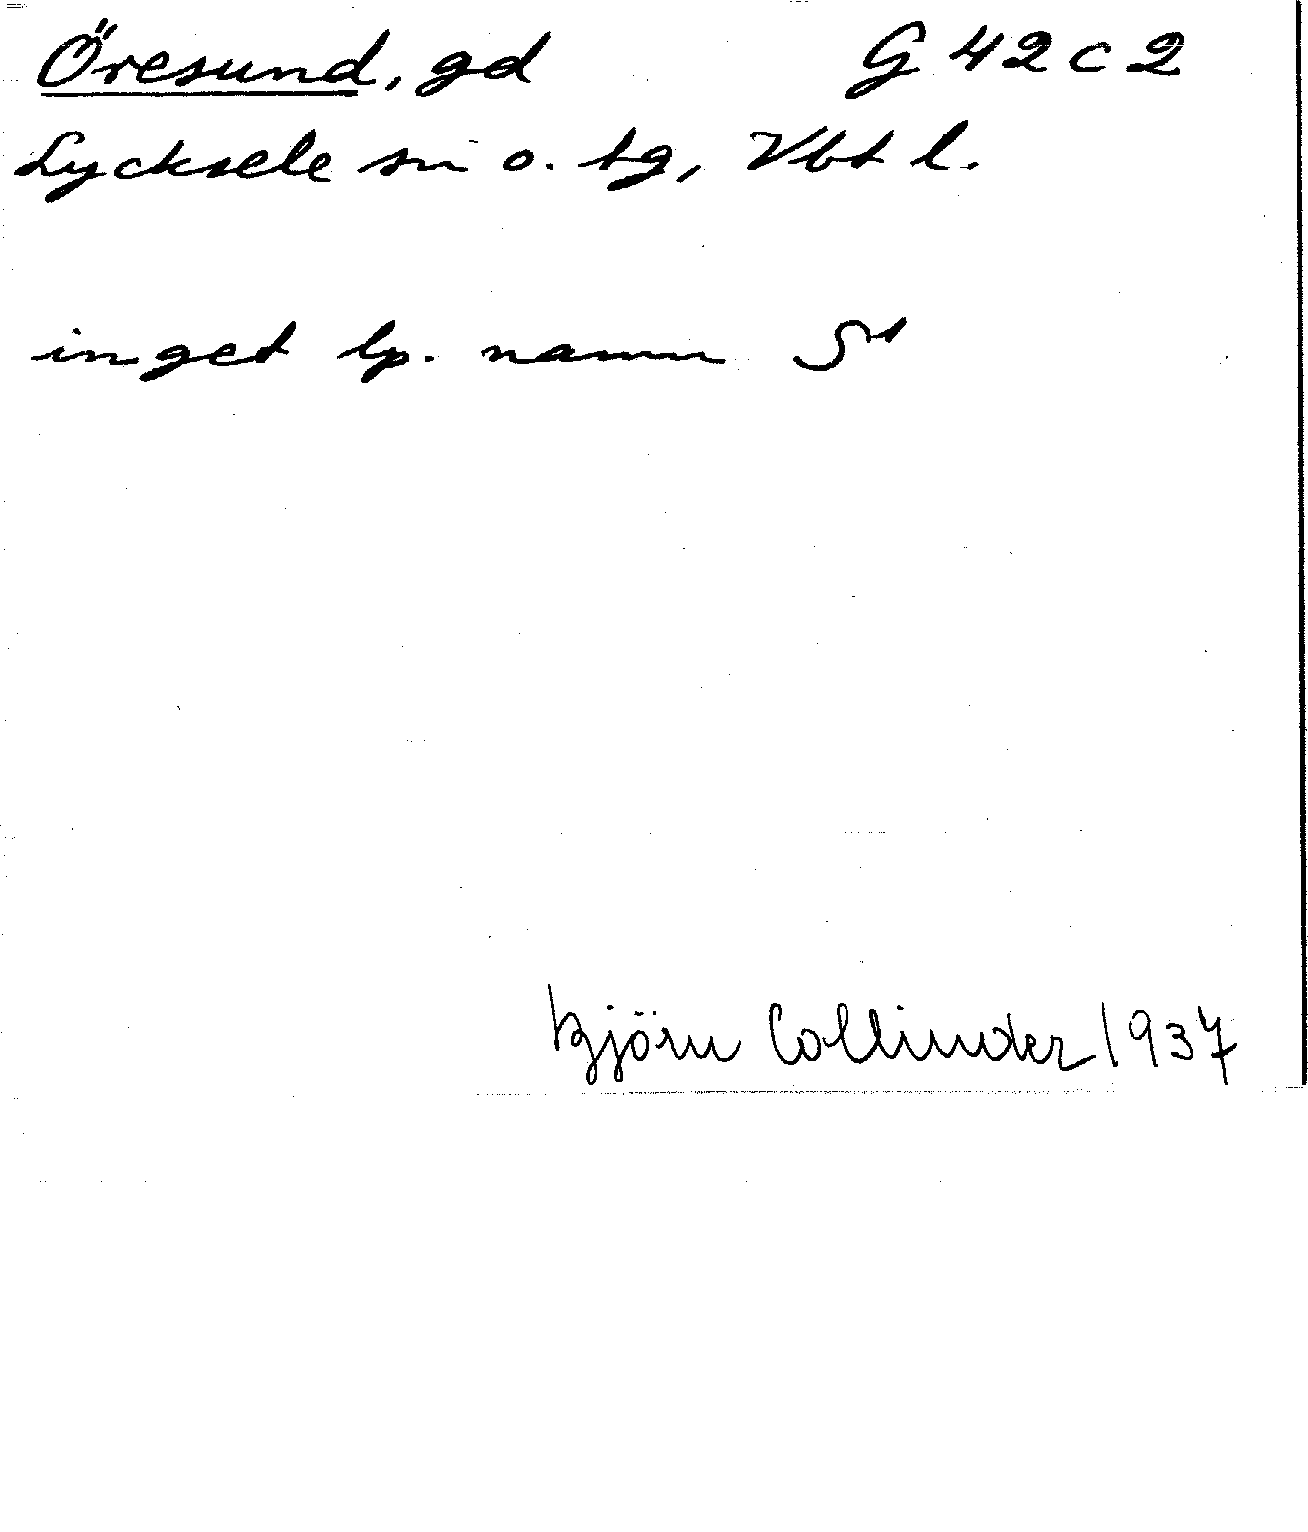 Öresund, gd G 42 c 2
Lycksele sn o. tg, Vbt l.
inget lp. namn St
Björn Collinder 1937